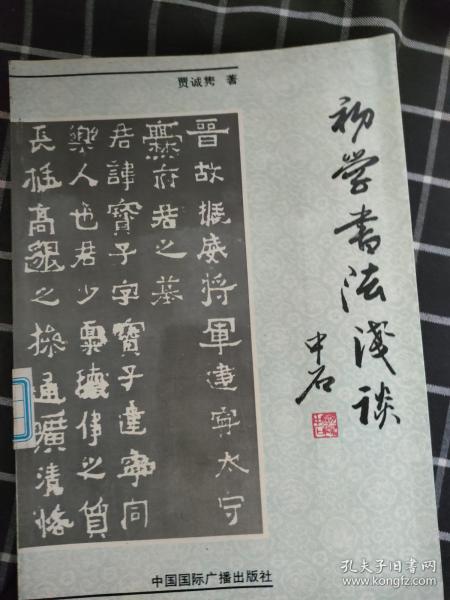 贾诚隽 著
初学书法浅谈
中石
晋故振威将軍建寧太守
爨府君之墓
君諱寶子字寶子建寧同
樂人也君少禀瓌偉之質
長挺高邈之操通曠清恪
中国国际广播出版社
孔夫子旧书网